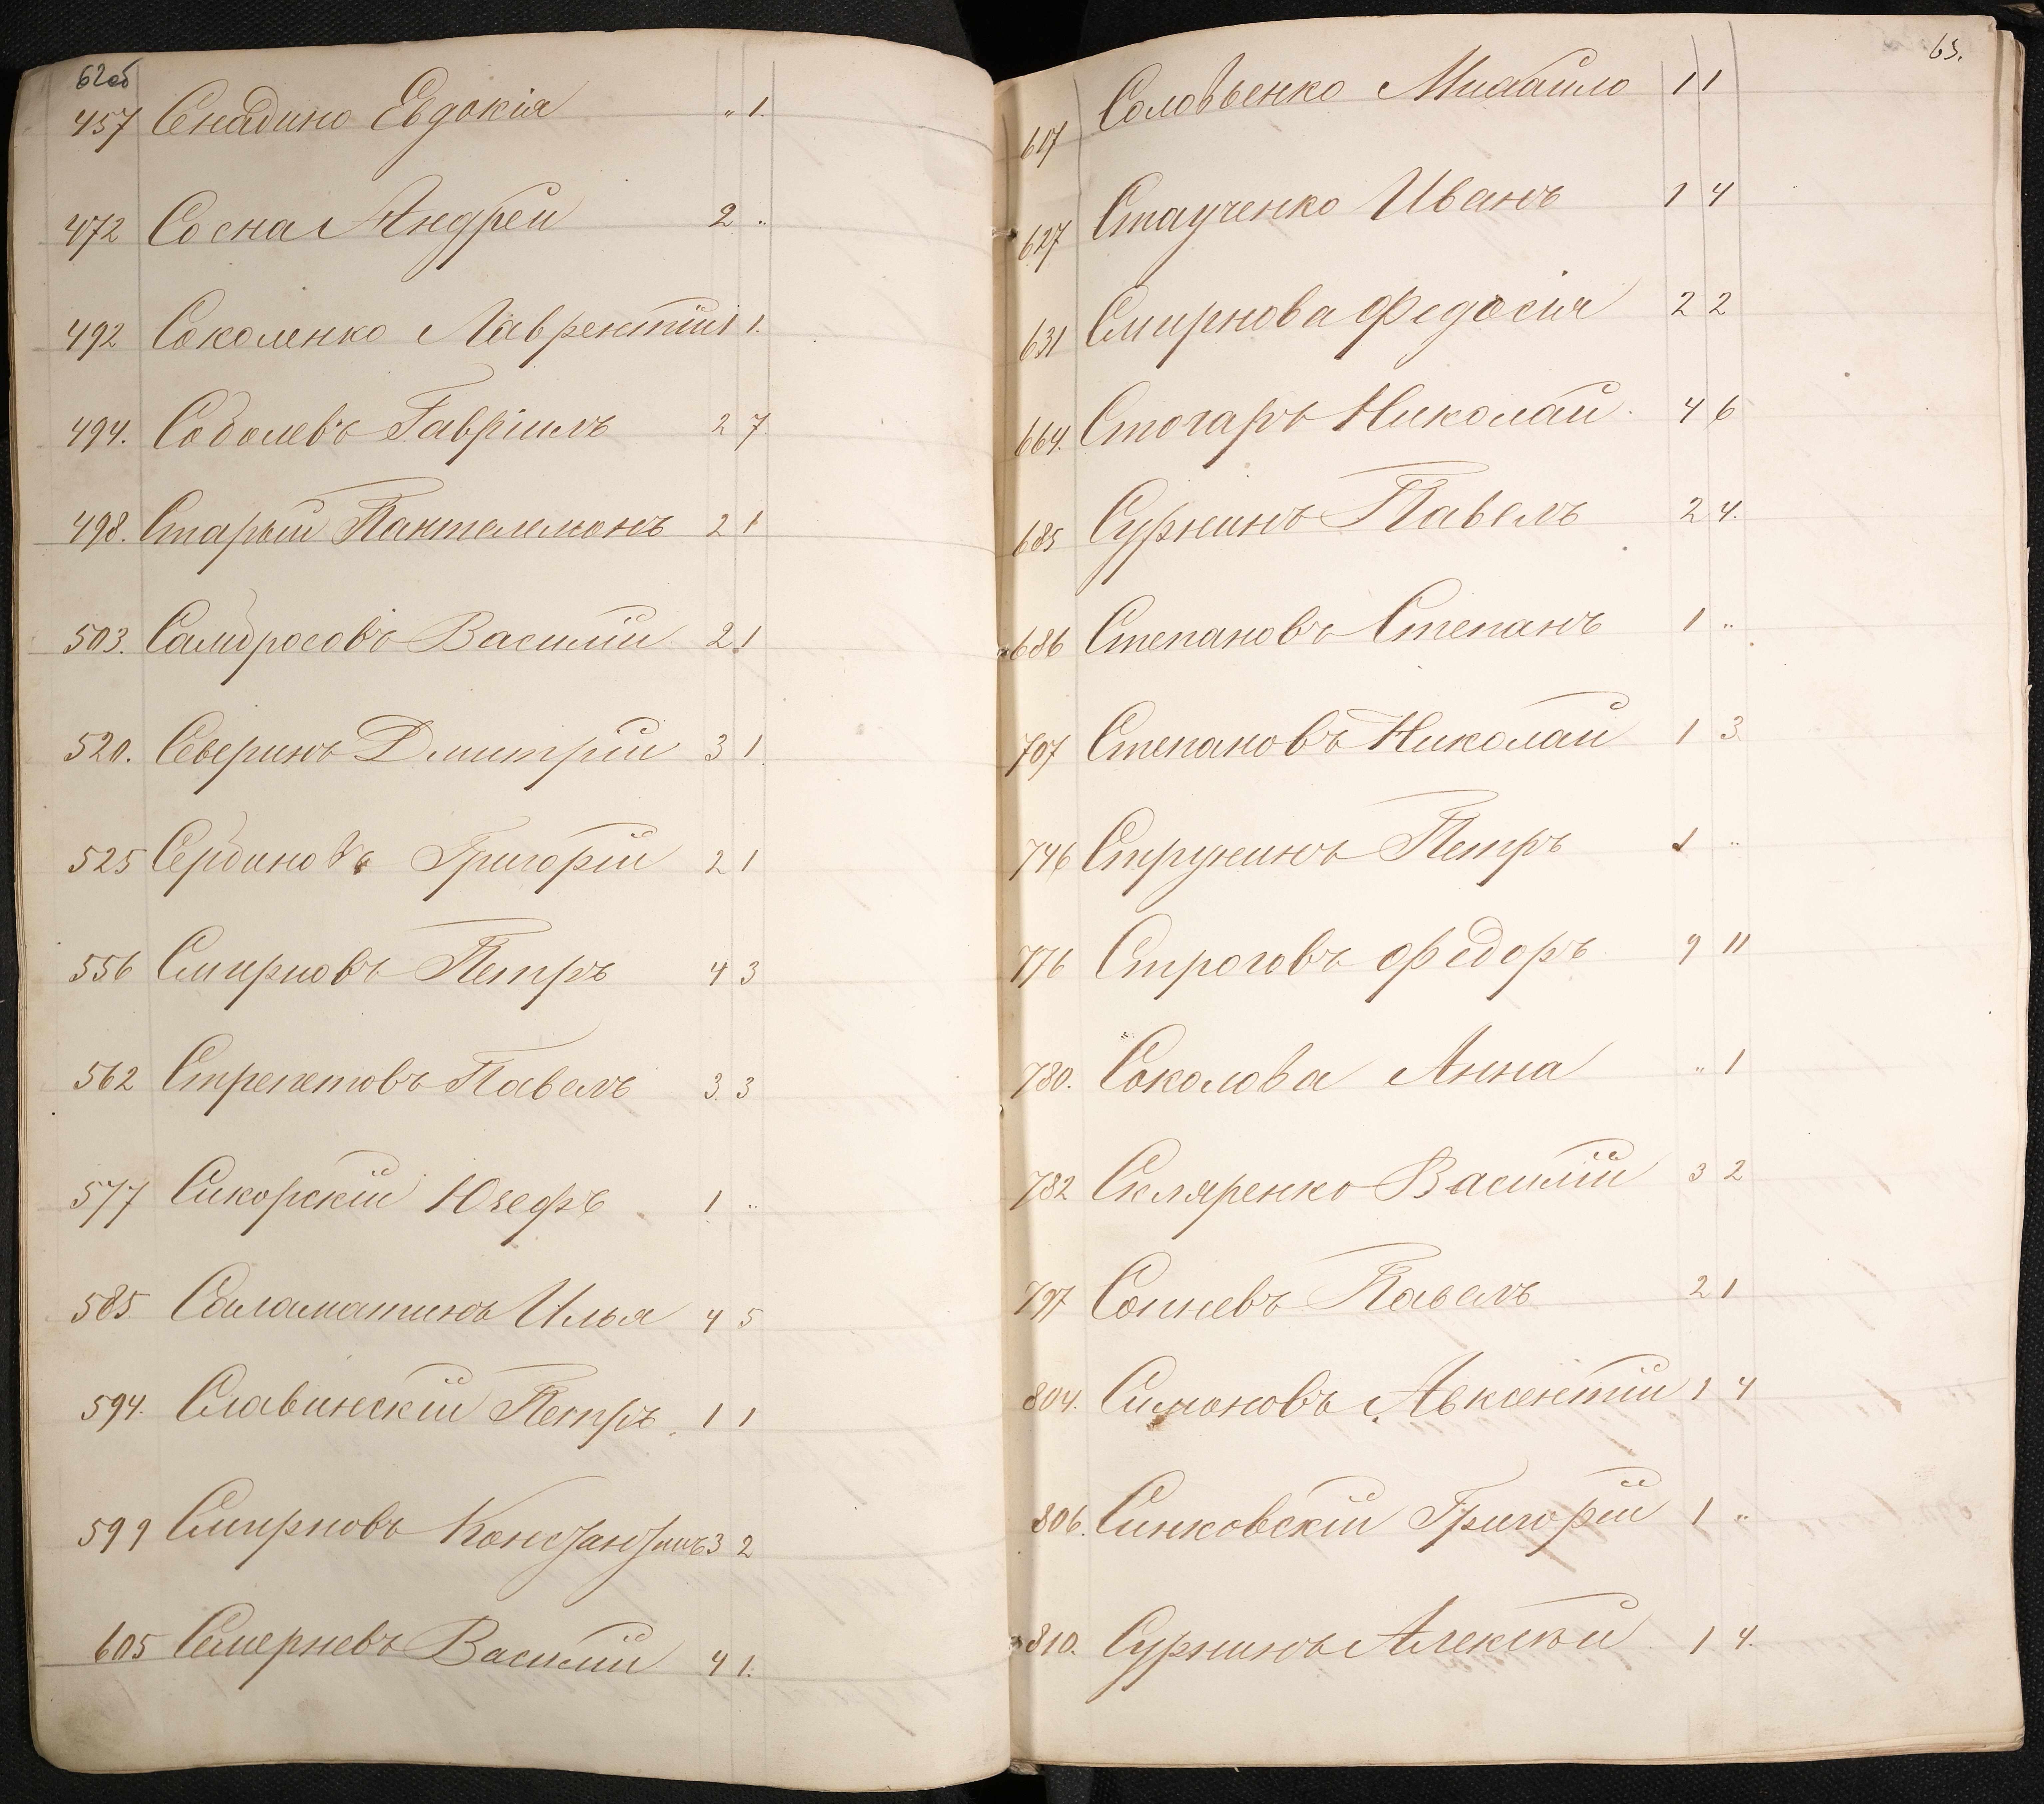 62об
457 Сенадино Евдокія " 1.
472 Сосна Андрей 2 "
492 Соколенко Лаврентій 1 1.
494. Соболевъ Гавріилъ 2 7.
498. Старый Пантелемонъ 2 1
503. Самбросовъ Василій 2 1
520. Северинъ Дмитрій 3 1
525 Сербиновъ Григорій 2 1
556 Смирновъ Петръ 4 3
562 Стрепетовъ Павелъ 3. 3
577 Сикорскій Юзефъ 1 "
585. Саламатинъ Илья 4 5
594. Славинскій Петръ 1 1
599 Смирновъ Константинъ 3 2
605 Семерневъ Василій 4 1.
63.
617 Соловьенко Михаило 1 1
627 Стаученко Иванъ 1 4
631 Смирнова Федосія 2 2
664. Стогаръ Николай 4 6
685 Сурнинъ Павелъ 2 4.
686 Степановъ Степанъ 1 "
707 Степановъ Николай 1 3
746 Струнинъ Петръ 1 "
776 Строговъ Федоръ 9 11
780. Соколова Анна " 1
782 Скляренко Василій 3 2
797 Сопневъ Павелъ 2 1
804. Симоновъ Авксентій 1 4
806. Синковскій Григорій 1 "
810. Сурнинъ Алексѣй 1 4.